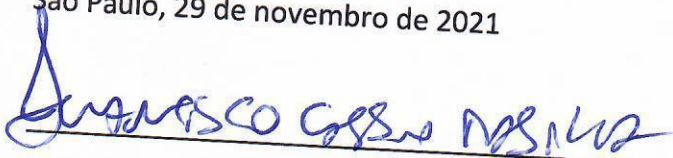 São Paulo, 29 de novembro de 2021
Francisco Cassio da Silva